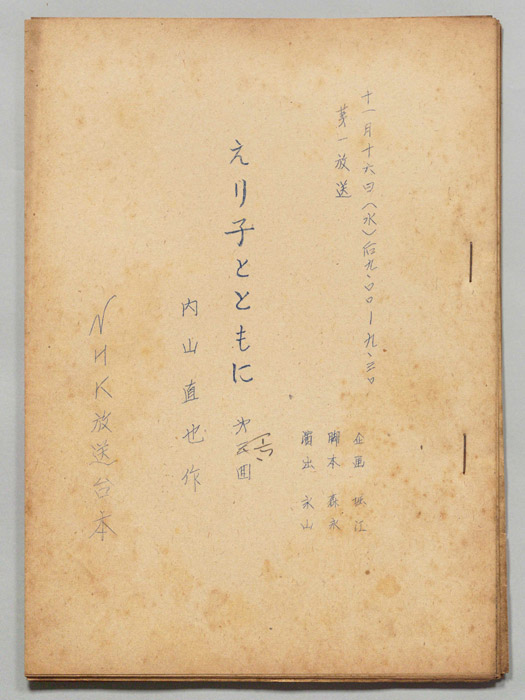 十一月十六日(水)后九.〇〇ー九.三〇
第一放送
企画 堀江
脚本 森永
演出 永山
えり子とともに
内山直也作
NHK放送台本